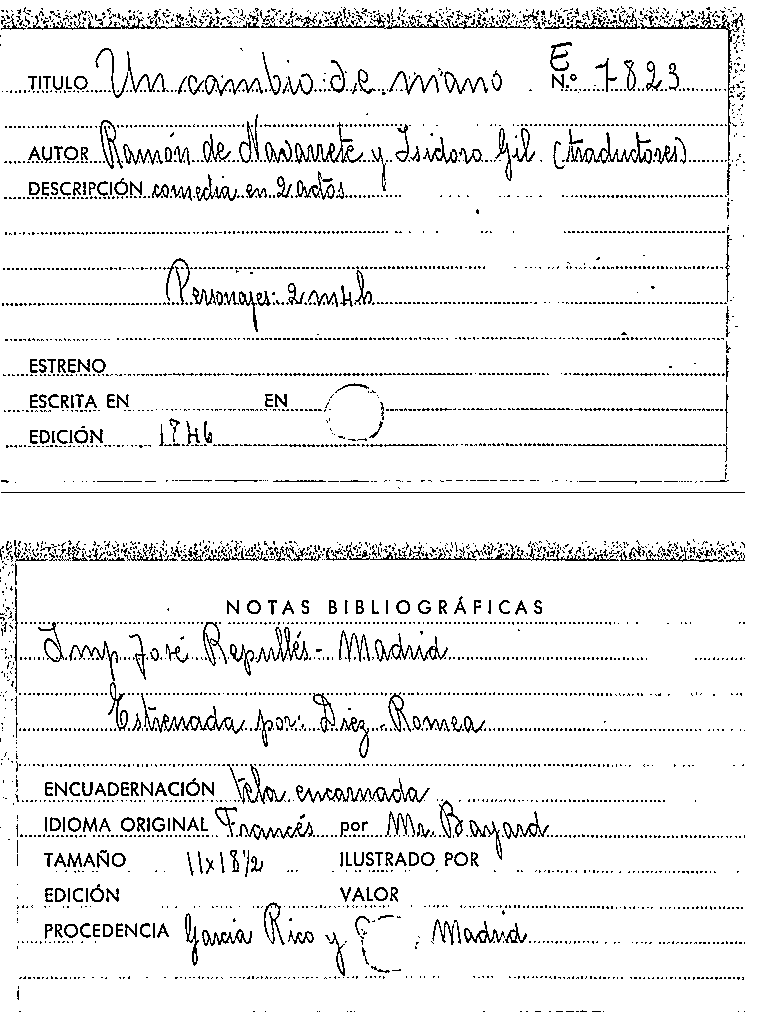 TITULO Un cambio de mano E N.º 7823
AUTOR Ramón de Navarrete y Isidoro Gil (traductores)
DESCRIPCIÓN comedia en 2 actos
Personajes: 2 m 4 h
ESTRENO
ESCRITA EN EN
EDICIÓN 1846
NOTAS BIBLIOGRÁFICAS
Imp José Repullés - Madrid
Estrenada por: Diez - Romea
ENCUADERNACIÓN tela encarnada
IDIOMA ORIGINAL Francés por Mr. Bayard
TAMAÑO 11x18½ ILUSTRADO POR
EDICIÓN VALOR
PROCEDENCIA García Rico y , Madrid